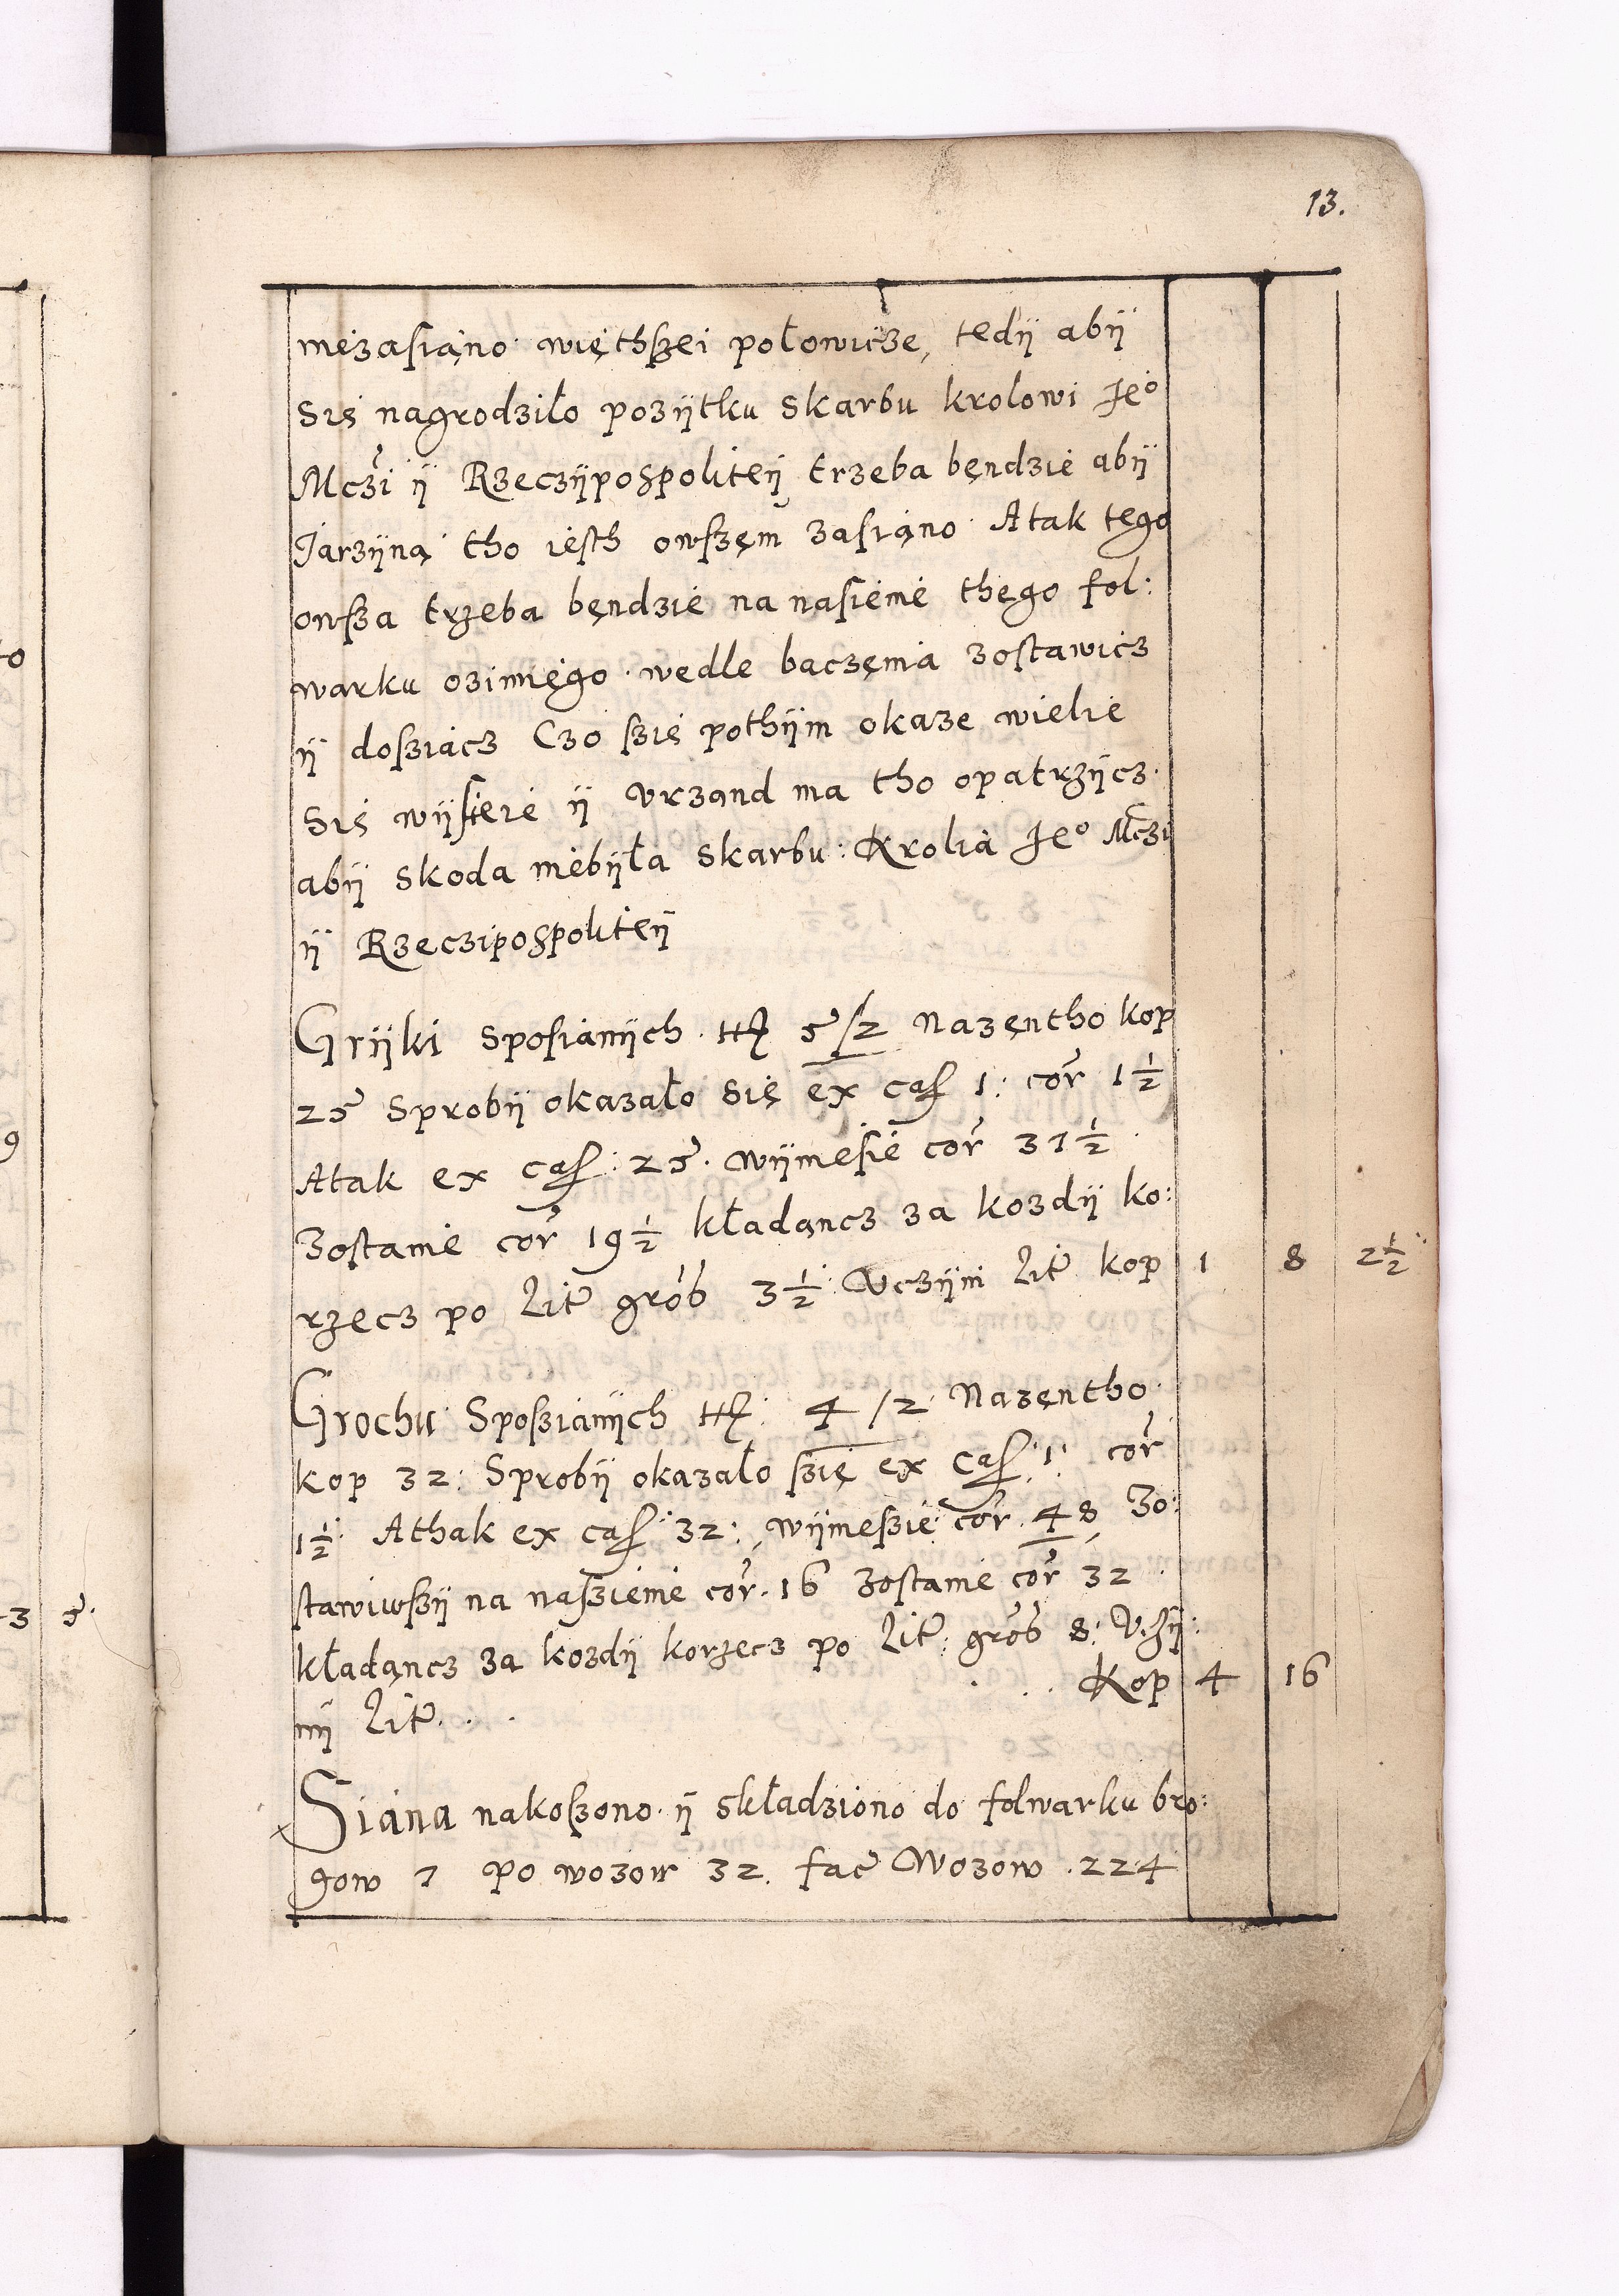 13.
niezasiąno więthszei połowicze, tedÿ abÿ
Się nagrodziło pozÿtku skarbu krolowi Jeº
Mczi ÿ Rzeczÿpospoliteÿ trzeba będzie abÿ
Jarzÿną tho iesth owszęm zasiąno Atak tego
owsza trzeba będzie na nasienie thego fol:
warku ozimięgo wedle baczęnia zostawicz
ÿ dosziacz Czo szię pothÿm okaze wielie
Się wÿsieie ÿ Vrzand ma tho opatrzÿcz
abÿ skoda niebÿła skarbu: Krolia Jeº Mczi
ÿ Rzeczipospoliteÿ
Grÿki Sposianÿch 5/2 Nazęntho kop
25 Sprobÿ okazało się ex cas 1: cor 1½
Atak ex cas: 25. wÿniesie cor 37½
Zostanie cor 19½ kładąncz za kozdÿ ko:
rzecz po Lit grob 3½ Vczÿni Lit kop 1 8 2½
Grochu Sposzianÿch 4/2 Nazęntho
kop 32: Sprobÿ okazało szię ex cas 1 cor
1½ Athak ex cas 32: wÿnieszie cor 48 Zo:
stawiwszÿ na naszienie cor. 16 zostanie cor 32
kładąncz za kozdÿ korzecz po Lit: grob 8:
nÿ Lit. . . . . . Kop 4 16
Siana nakoszono ÿ składziono do folwarku bro:
gow 7 po wozow 32. fac Wozow 224
3 5